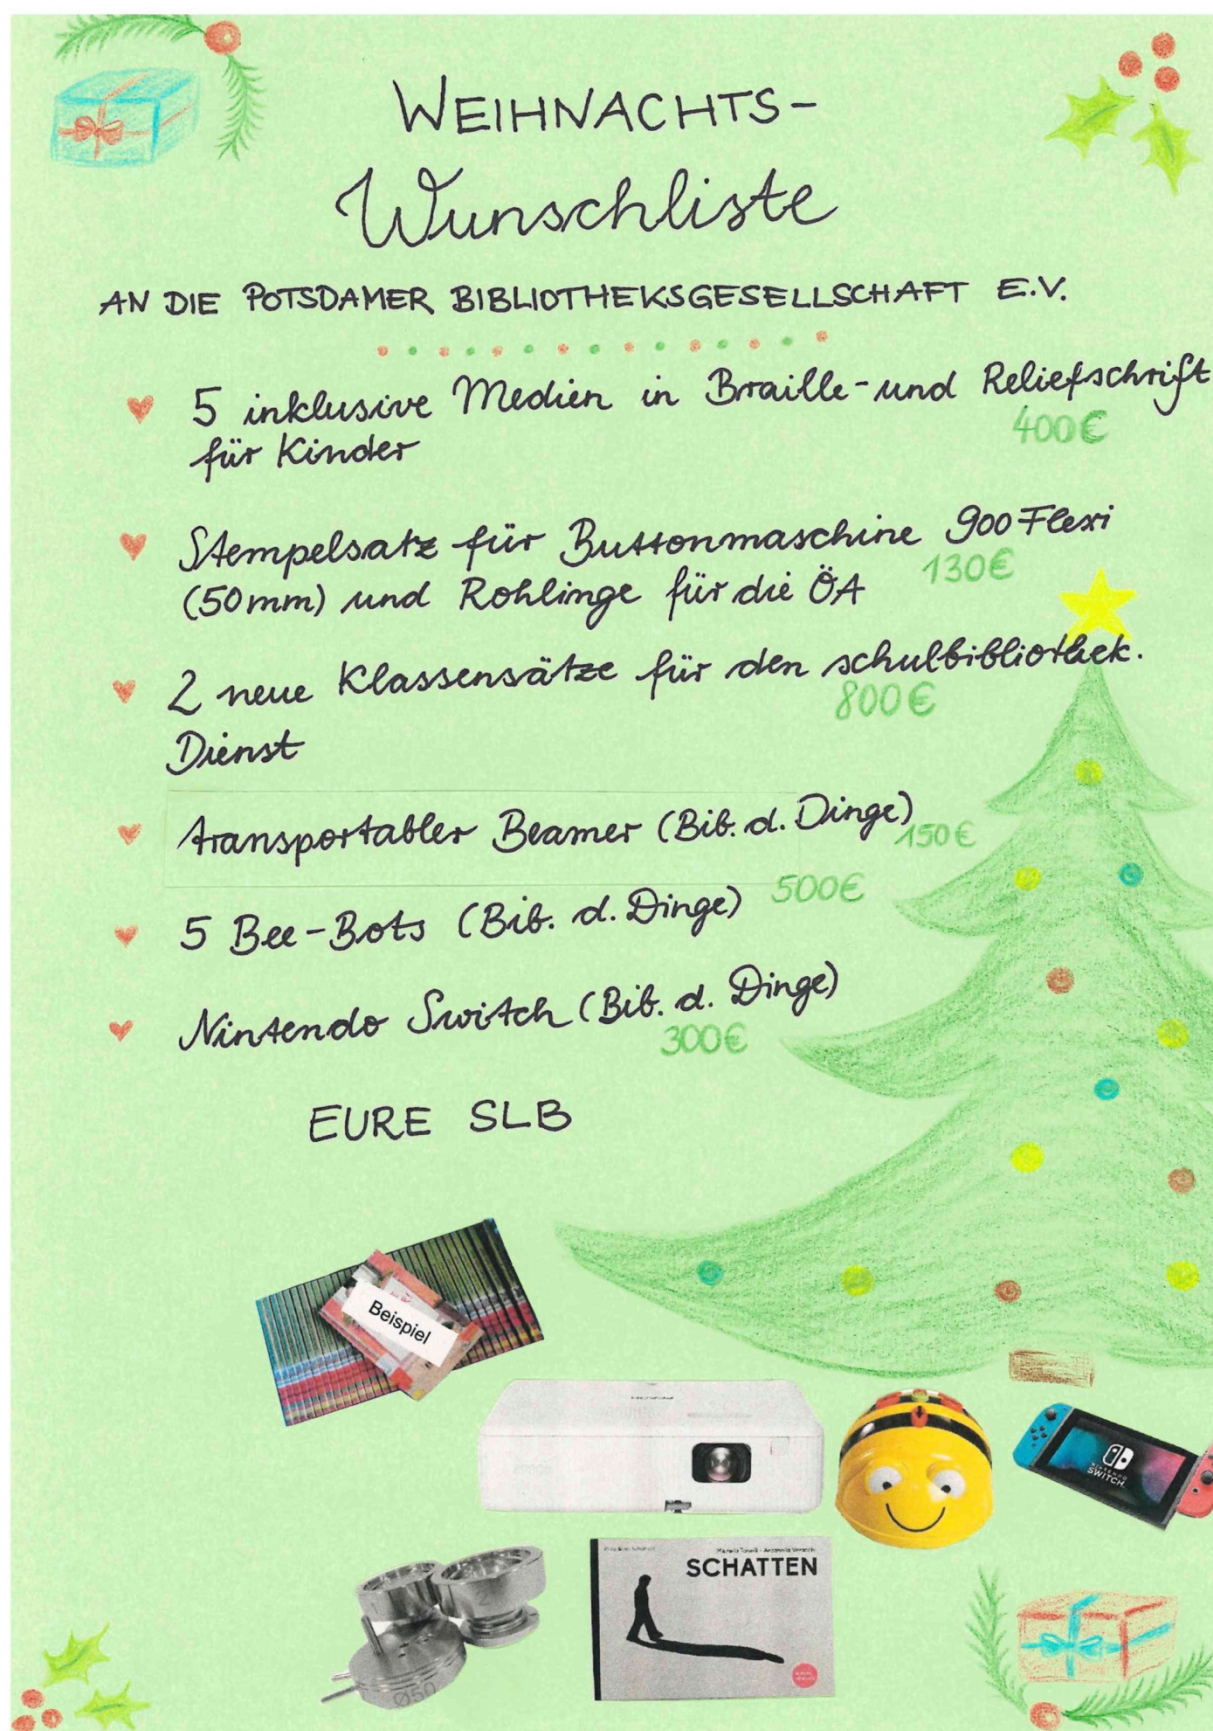 WEIHNACHTS-
Wunschliste
AN DIE POTSDAMER BIBLIOTHEKSGESELLSCHAFT E.V.
5 inklusive Medien in Braille- und Reliefschrift
400€
für Kinder
Stempelsatz für Buttonmaschine 900 Flexi
130€
(50mm) und Rohlinge für die ÖA
2 neue Klassensätze für den schulbibliothek.
800€
Dienst
transportabler Beamer (Bib. d. Dinge)
150€
5 Bee-Bots (Bib. d. Dinge) 500€
Nintendo Switch (Bib. d. Dinge)
300€
EURE SLB
Beispiel
NINTENDO
SWITCH
SCHATTEN
Ø50